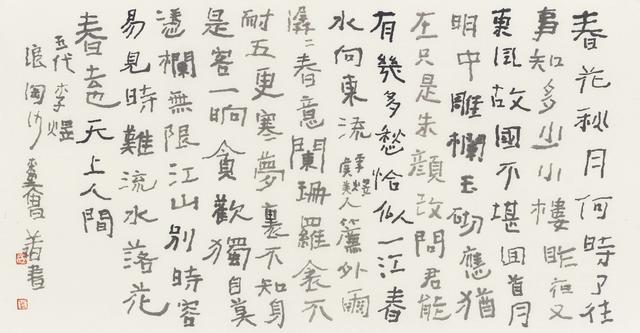 春花秋月何時了往
事知多少小樓昨夜又
東風故國不堪回首月
明中雕欄玉砌應猶
在只是朱顏改問君能
有幾多愁恰似一江春
水向東流 李煜虞美人 簾外雨
潺々春意闌珊羅衾不
耐五更寒夢裏不知身
是客一晌貪歡獨自莫
憑欄無限江山別時容
易見時難流水落花
春去也天上人間
五代李煜
浪淘沙 會 書